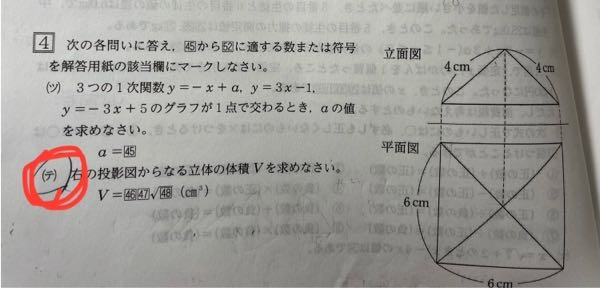 4 次の各問いに答え，45から52に適する数または符号
を解答用紙の該当欄にマークしなさい。
(ツ) 3つの1次関数 y=−x+a, y=3x−1,
y=−3x+5のグラフが1点で交わるとき，aの値
を求めなさい。
a=45
(テ) 右の投影図からなる立体の体積Vを求めなさい。
V=4647√48 (cm³)
立面図
4cm
4cm
平面図
6cm
6cm